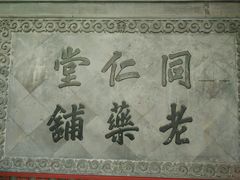 同仁堂
老藥鋪